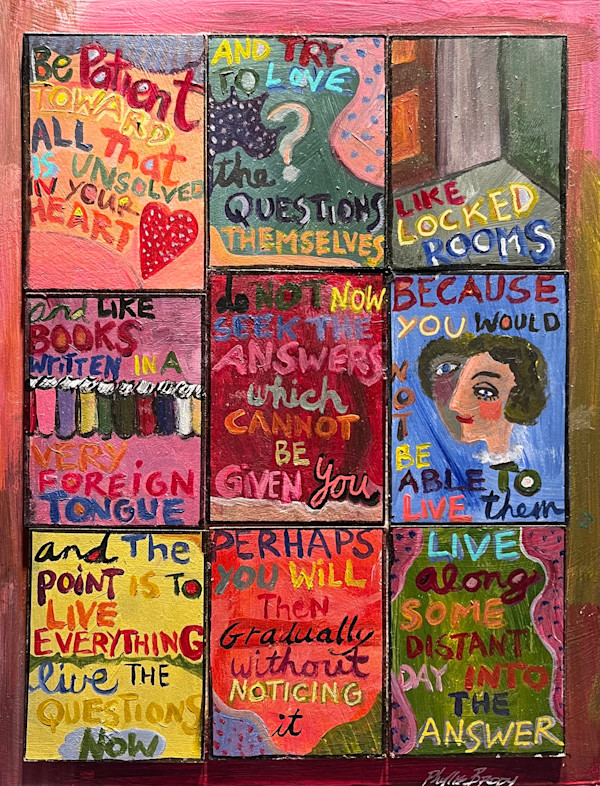 Be Patient
TOWARD
ALL that
IS UNSOLVED
IN YOUR
HEART
AND TRY
TO LOVE
?
the
QUESTIONS
THEMSELVES
LIKE
LOCKED
ROOMS
and LIKE
BOOKS
WRITTEN IN A
VERY
FOREIGN
TONGUE
do NOT NOW
SEEK THE
ANSWERS
which
CANNOT
BE
GIVEN You
BECAUSE
YOU WOULD
NOT
BE
ABLE TO
LIVE them
and The
POINT IS TO
LIVE
EVERYTHING
live THE
QUESTIONS
NOW
PERHAPS
YOU WILL
Then
Gradually
without
NOTICING
it
LIVE
along
SOME
DISTANT
DAY INTO
THE
ANSWER
Phyllis Brody